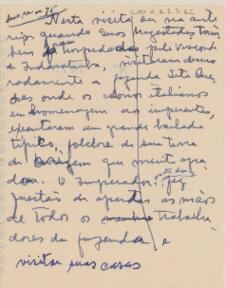 Nesta visita ou na ante
rior quando Suas Magestades Tam
bem hospedadas pelo Visconde
de Indaiatuba, visitaram demo
radamente a fazenda Sete Que
das onde os colonos italianos
em homenagem aos imperantes,
executaram um grande bailado
típico, folclore de sua terra
de origem que muito agra
dou. O Imperador fez
questão de apertar as mãos
de Todos os trabalha
dores da fazenda e
visitar suas casas